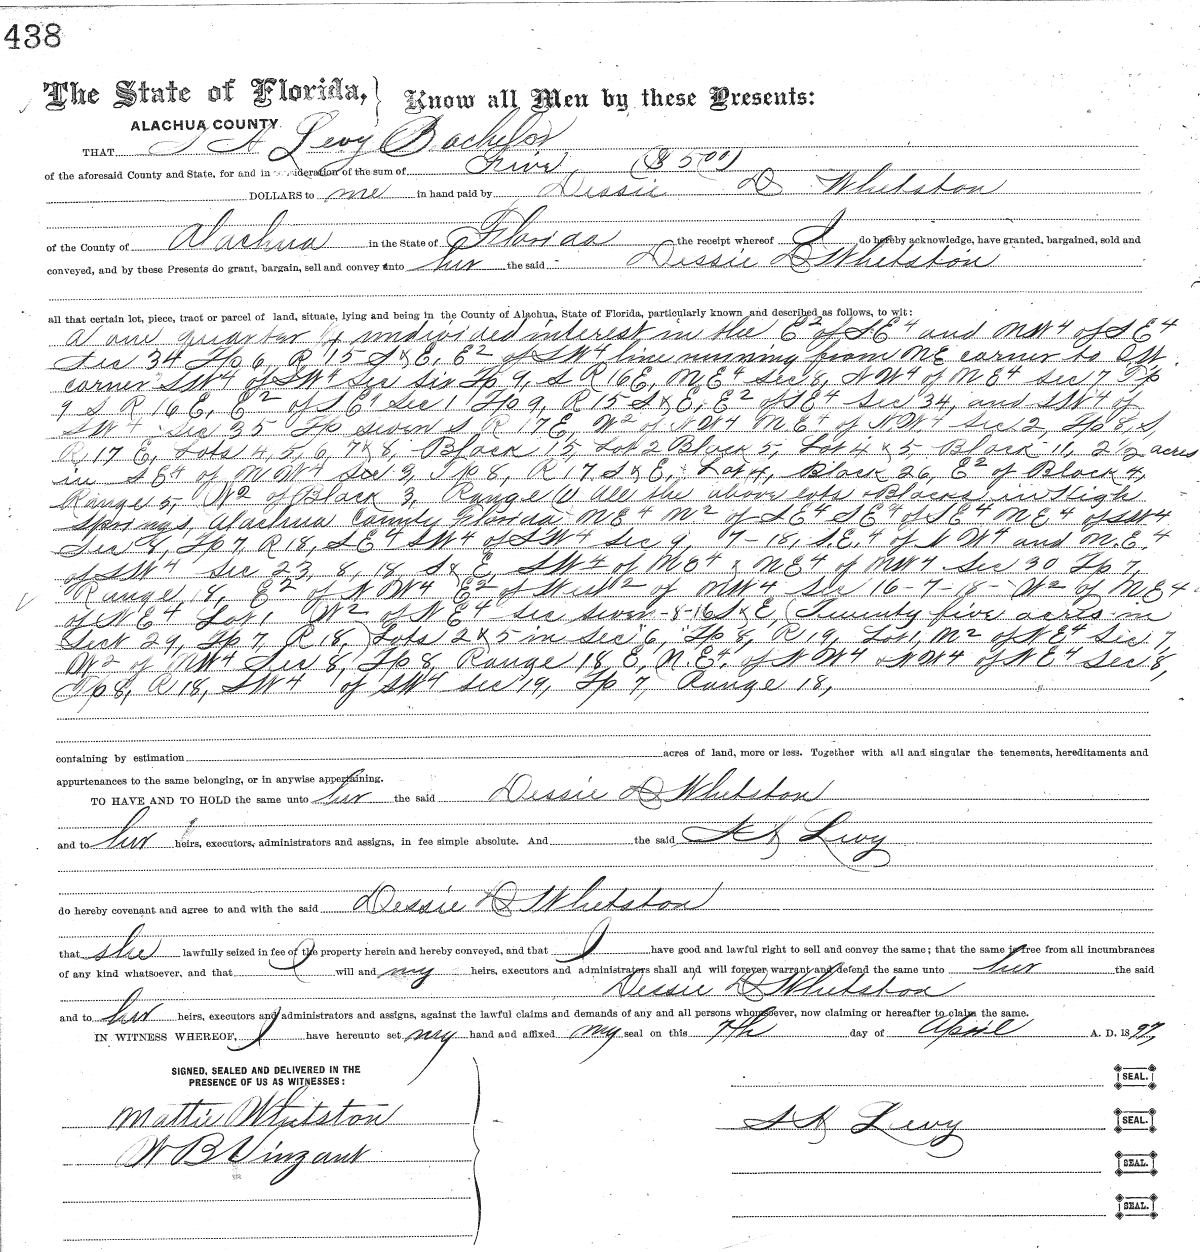 438
The State of Florida, } Know all Men by these Presents:
ALACHUA COUNTY
THAT Levy Bachelor
of the aforesaid County and State, for and in consideration of the sum of Five ($5 00)
DOLLARS to me in hand paid by Dessie D Whetston
of the County of Alachua in the State of Florida the receipt whereof I do hereby acknowledge, have granted, bargained, sold and
conveyed, and by these Presents do grant, bargain, sell and convey unto her the said Dessie D Whetston
all that certain lot, piece, tract or parcel of land, situate, lying and being in the County of Alachua, State of Florida, particularly known and described as follows, to wit:
A one quarter ¼ undivided interest in the E2 of SE4 and NW4 of SE4
Sec 34 Tp 6, R 15 S & E, E2 of SW4 line running from NE corner to SW
corner SW4 of SW4 Sec six Tp 9, S R 16 E, NE4 Sec 8, NW4 of NE4 Sec 17 Tp
9 S R 16 E, E2 of SE4 Sec 1 Tp 9, R 15 S & E, E2 of SE4 Sec 34, and SW4 of
SW4 Sec 35 Tp seven S R 17 E, W2 of NW4 NE4 of NW4 Sec 2, Tp 8, S,
R 17 E, Lots 4, 5, 6, 7 & 8, Block 15, Lot 2 Block 5, Lot 4 & 5 Block 11, 2 1/2 acres
in SE4 of NW4 Sec 3, Tp 8, R 17 S & E, Lot 4, Block 26, E2 of Block 4,
Range 5, W2 of Block 3, Range All the above lots & Blocks in High
Springs, Alachua County Florida NE4 N2 of SE4 SE4 of SE4 NE4 of SW4
Sec 8, Tp 7, R 18, SE4 SW4 of SW4 Sec 9 7-18, SE4 of NW4 and N.E.4
of SW4 Sec 23, 8, 18 S & E, SW4 of NE4 & NE4 of NW4 Sec 30 Tp 7,
Range 18, E2 of NW4 E2 of West2 of NW4 Sec 16-7-18- W2 of NE4
of NE4 Lot 1 W2 of NE4 Sec seven-8-16 S & E, (Twenty five acres in
Sect 29, Tp 7, R 18,) Lots 2 & 5 in Sec 6, Tp 8, R 19, Lot 1, N2 of NE4 Sec 17,
W2 of NW4 Sec 8, Tp 8, Range 18 E, N.E4 of NW4 & NW4 of NE4 Sec 8,
Tp 8, R 18, SW4 of SW4 Sec 19, Tp 7, Range 18,
containing by estimation acres of land, more or less. Together with all and singular the tenements, hereditaments and
appurtenances to the same belonging, or in anywise appertaining.
TO HAVE AND TO HOLD the same unto her the said Dessie D Whetston
and to her heirs, executors, administrators and assigns, in fee simple absolute. And the said Levy
do hereby covenant and agree to and with the said Dessie D Whetston
that she lawfully seized in fee of the property herein and hereby conveyed, and that I have good and lawful right to sell and convey the same; that the same is free from all incumbrances
of any kind whatsoever, and that I will and my heirs, executors and administrators shall and will forever warrant and defend the same unto her the said
Dessie D Whetston
and to her heirs, executors and administrators and assigns, against the lawful claims and demands of any and all persons whomsoever, now claiming or hereafter to claim the same.
IN WITNESS WHEREOF, I have hereunto set my hand and affixed my seal on this 7th day of April A. D. 1897
SIGNED, SEALED AND DELIVERED IN THE
PRESENCE OF US AS WITNESSES:
SEAL.
Mattie Whetston
Levy SEAL.
W B Vinzant
SEAL.
SEAL.